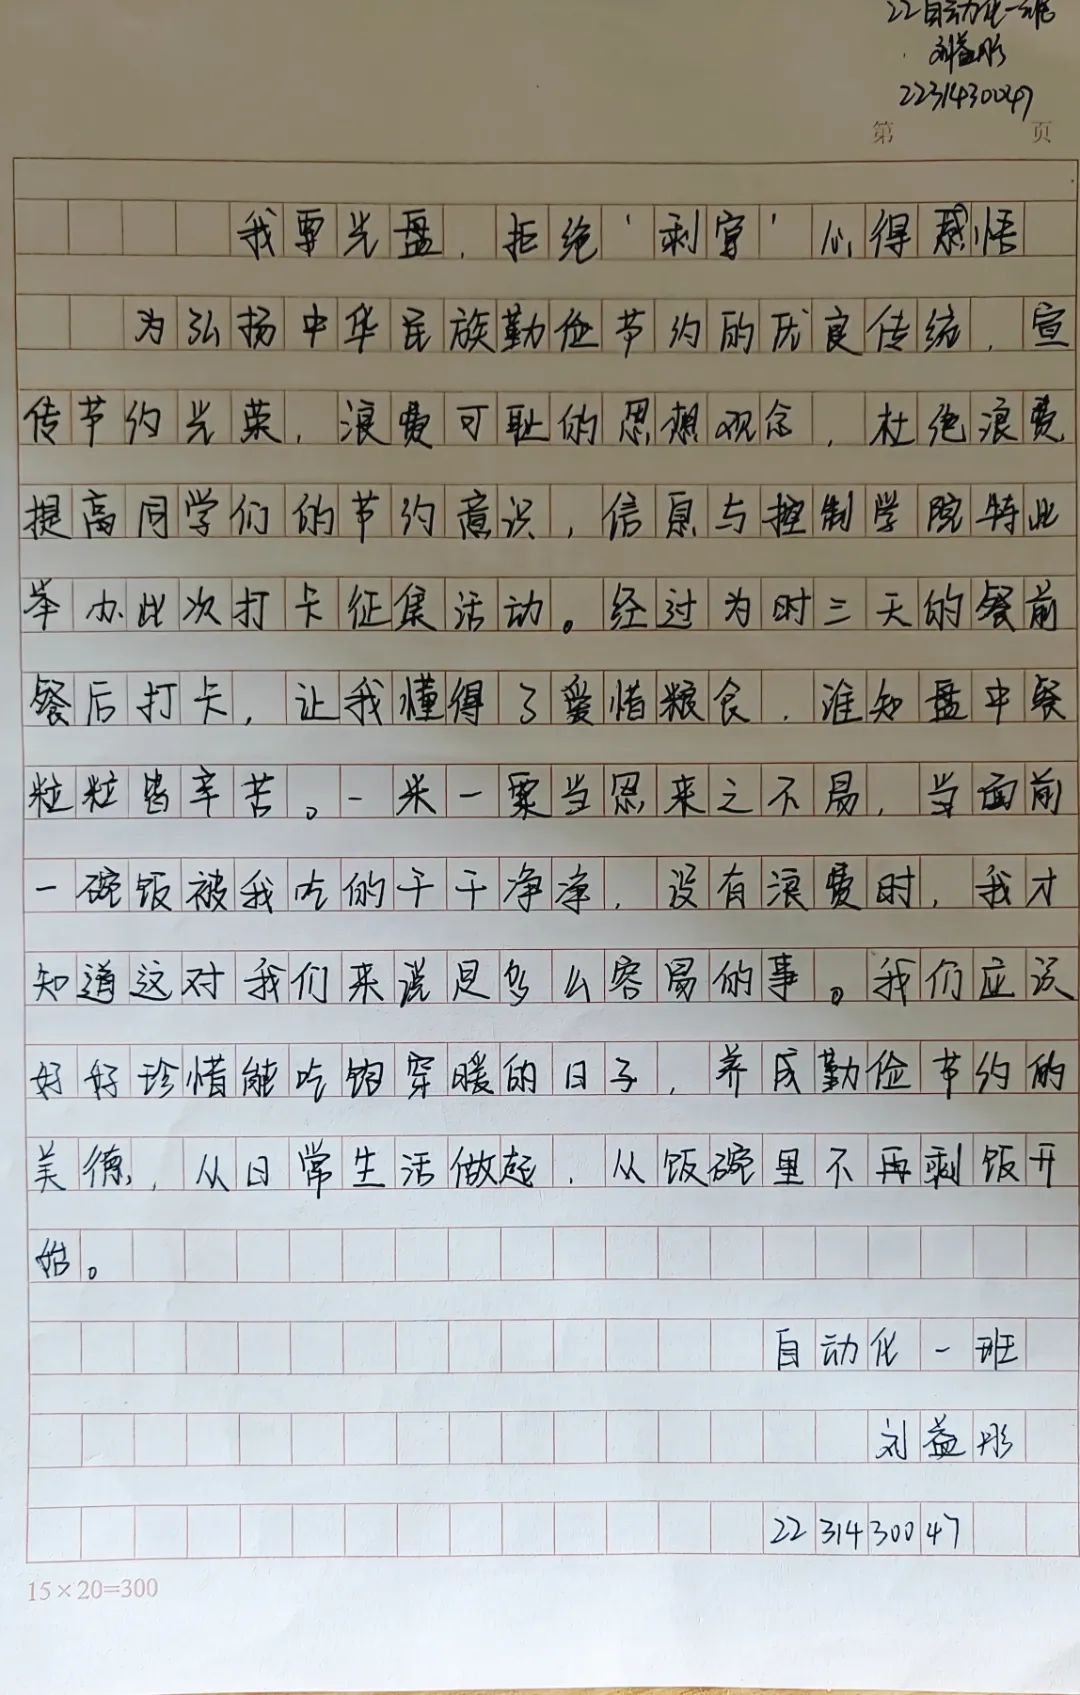 22自动化一班
刘益彤
2231430047
第 页
我要光盘，拒绝'剩宴'心得感悟
为弘扬中华民族勤俭节约的优良传统，宣
传节约光荣，浪费可耻的思想观念，杜绝浪费
提高同学们的节约意识，信息与控制学院特此
举办此次打卡征集活动。经过为时三天的餐前
餐后打卡，让我懂得了爱惜粮食，谁知盘中餐
粒粒皆辛苦。一米一粟当思来之不易，当面前
一碗饭被我吃的干干净净，没有浪费时，我才
知道这对我们来说是多么容易的事。我们应该
好好珍惜能吃饱穿暖的日子，养成勤俭节约的
美德，从日常生活做起，从饭碗里不再剩饭开
始。
自动化一班
刘益彤
2231430047
15×20=300